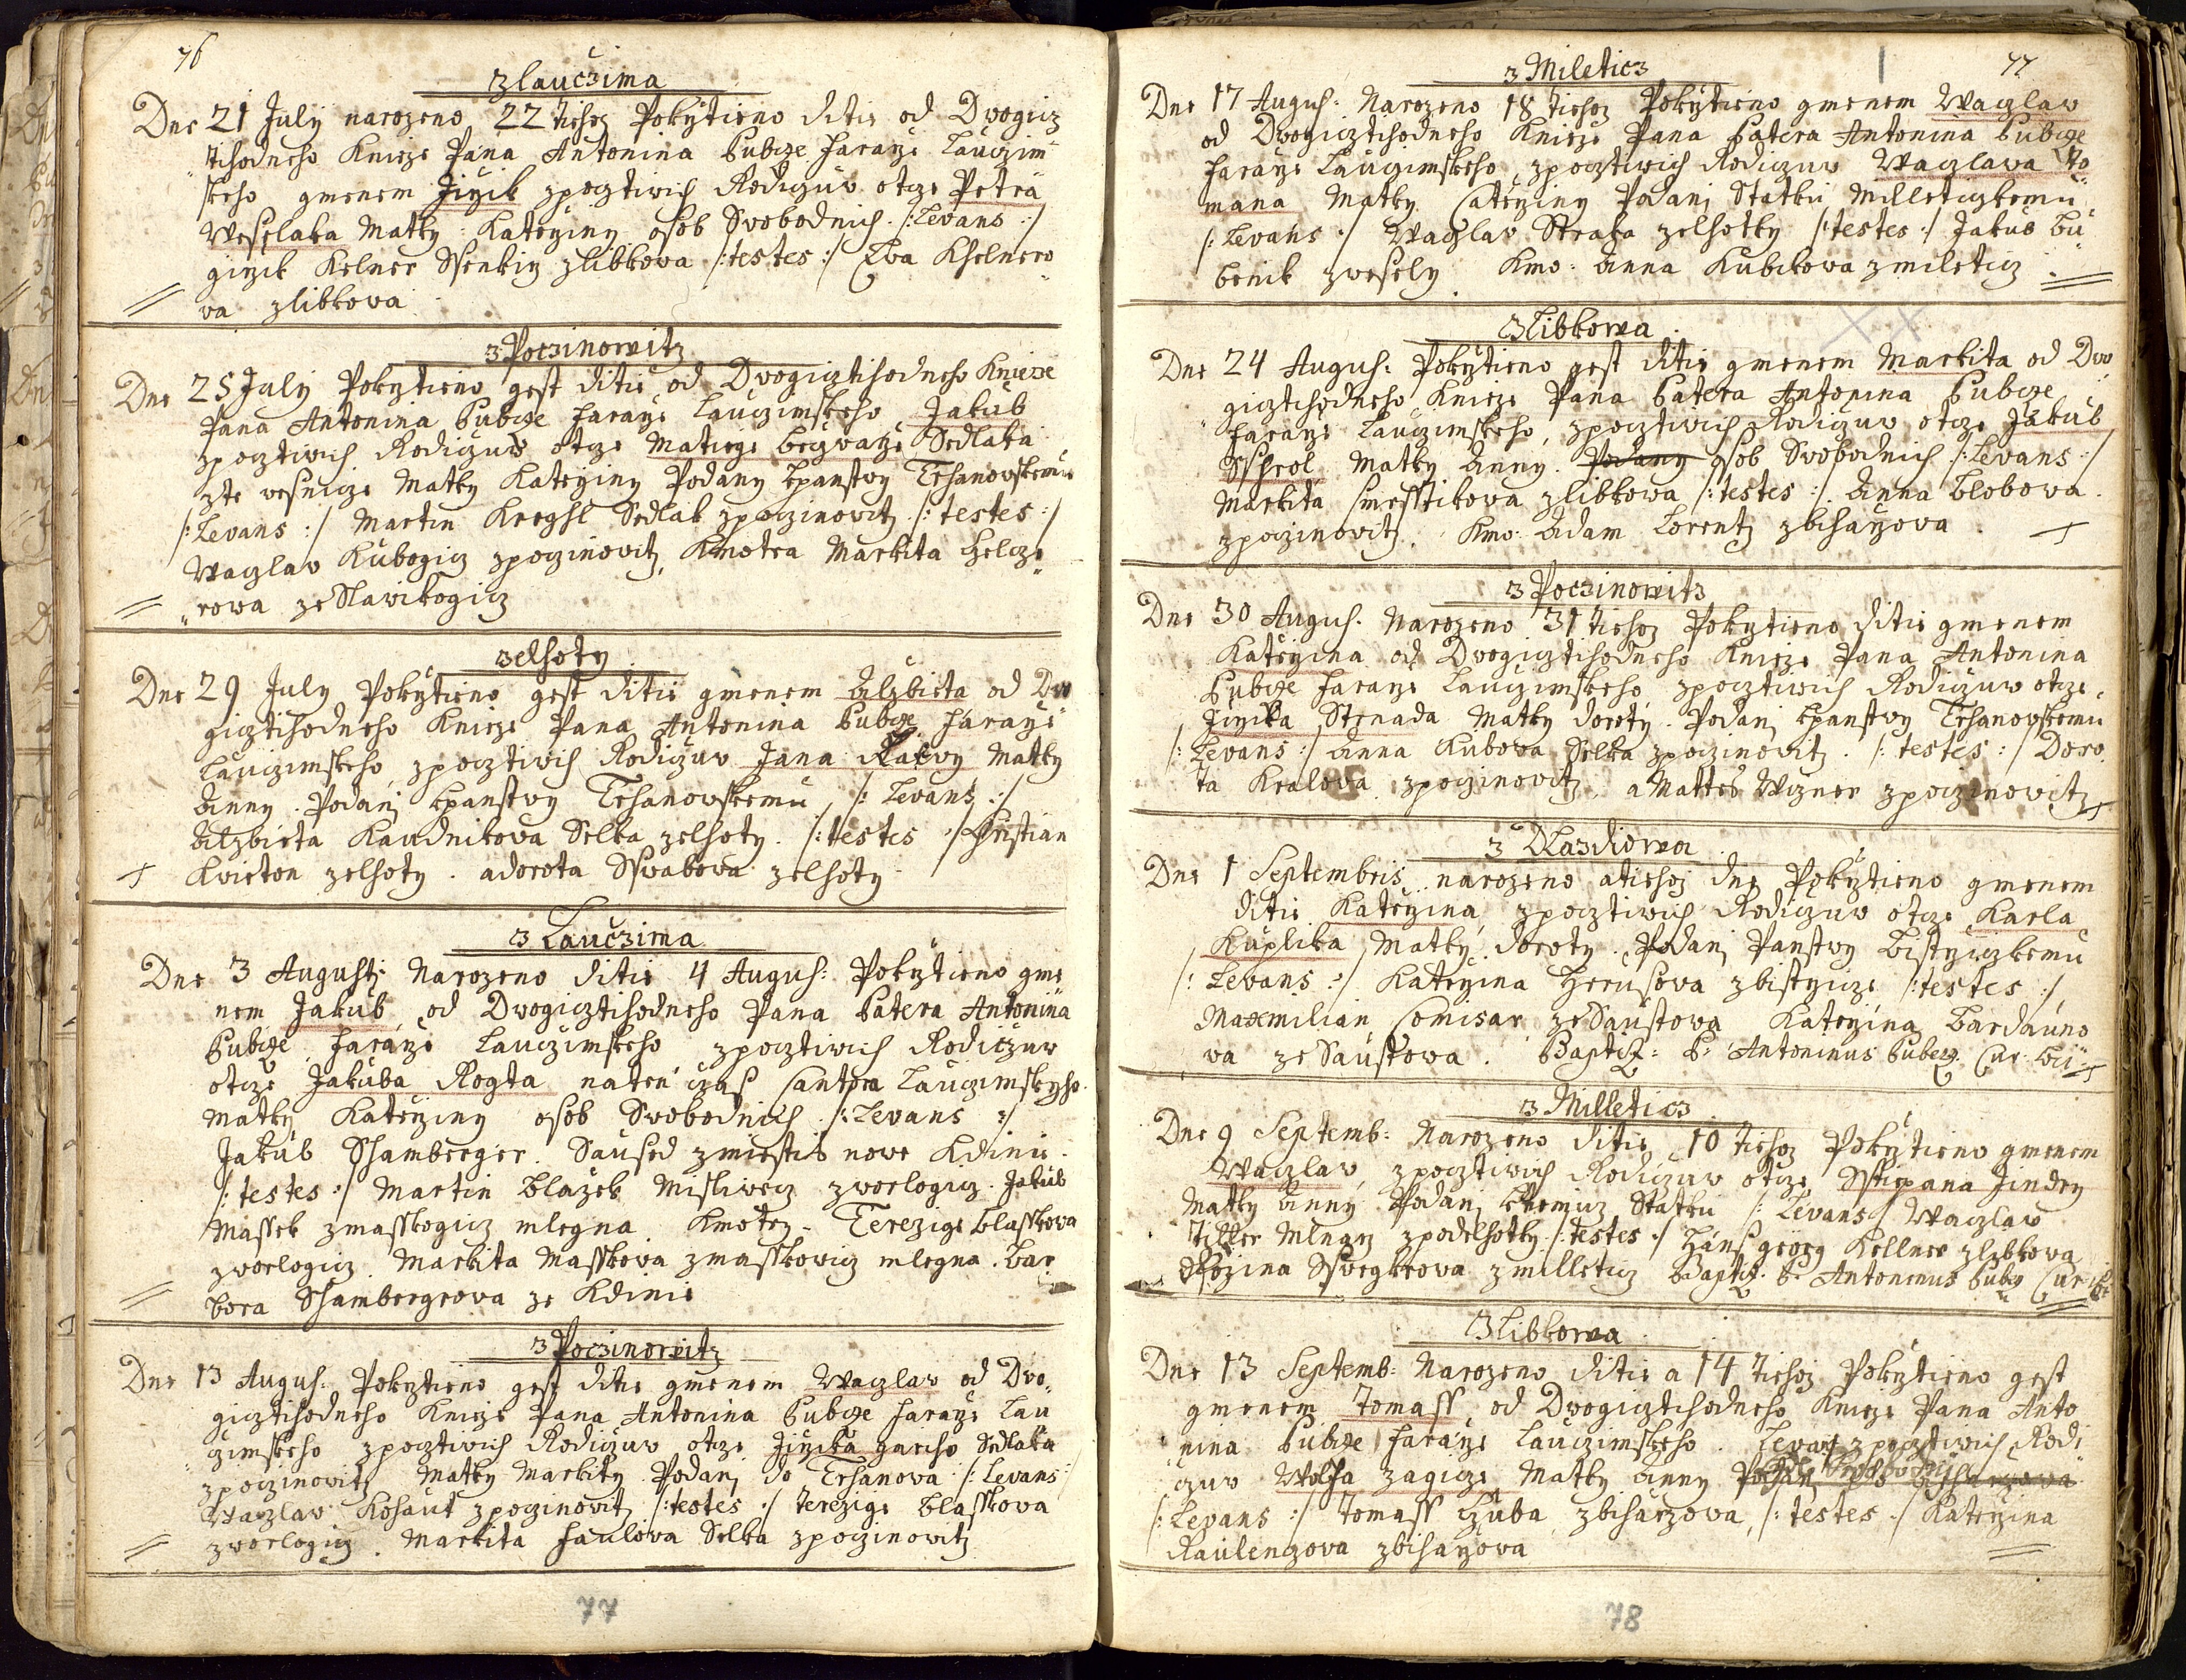 76
Zlaučzima
Dne 21 July narozeno 22 tiehoz Pokrztieno ditie od Dwogicz
tihodneho Knieze Pana Antonina Bubcze Faraže Lauczim
skeho gmenem Jirzik zpocztiwich Rodiczuw otcze Petra
Wesselaka Matky Katerziny osob Swobodnich /: Levans :/
girzik Kelner Ssenkirz zlibkowa /: testes :/ Ewa Khelnero
wa zlibkowa
z Poczinowitz
Dne 25 July Pokrztieno gest ditie od Dwogicztihodneho Knieze
Pana Antonina Bubcze Faraže Lauczimskeho Jakub
zpocztiwich Rodiczuw otcze Matiege Beczwarze Sedlaka
zte wesnicze Matky Katerziny Podany kpanstwy Trhanowskemu
/: Levans :/ Martin Kreghl Sedlak zpoczinowitz /: testes :/
Waczlaw Kubogicz zpoczinowitz, Kmotra Markita Helcze
rowa ze Slawikogicz
zelhoty
Dne 29 July Pokrztieno gest ditie gmenem Alzbieta od Dwo
gicztihodneho Knieze Pana Antonina Bubcze Faraže
Lauczimskeho zpocztiwich Rodiczuw Jana Matky
Anny. Podani kpanstwy Trhanowskemu /: Levans :/
Alzbieta Kaudnikowa Selka zelhoty. /: testes :/ Kristian
Kwieton zelhoty. a dorota Sswabowa zelhoty
z Laučzima
Dne 3 Augusti Narozeno ditie 4 August: Pokrztieno gme
nem Jakub od Dwogicztihodneho Pana Patera Antonina
Bubcze Faraže Lauczimskeho zpocztiwich Rodiczuw
otcze Jakuba Rogta naten czas Cantora Lauczimskyho
Matky Katerziny osob Swobodnich /: Levans :/
Jakub Shamberger. Saused zmiestis nowe Kdinie.
/: testes :/ Martin Blažek Misliwecz zworlogicz. Jakub
Massek zmasskogicz mlegna Kmotry. Terezige Blasskowa
zworlogicz. Markita Masskowa zmasskowicz mlegna. Bar
bora Shambergrowa ze Kdinie
z Poczinowitz
Dne 13 August: Pokrztieno gest ditie gmenem Waczlaw od Dwo,
gicztihodneho Knieze Pana Antonina Bubcze Faraže Lau
czimskeho zpocztiwich Rodiczuw otcze Jirzika Sedlaka
zpoczinowitz Matky Markity Podani do Trhanowa /: Levans :/
Waczlaw Kohaut zpoczinowitz /: testes :/ terezige Blasskowa
zworlogicz. Markita Faulowa Selka zpoczinowitz
77
77
z Mileticz
Dne 17 August: Narozeno 18 tiehoz Pokrztieno gmenem Waczlaw
od Dwogicztihodneho Knieze Pana Patera Antonina Bubcze
Faraže Lauczimskeho, zpocztiwich Rodiczuw Waczlawa To
mana Matky Caterziny Podani Statku Milleticzkemu
/: Levans :/ Waczlaw Straka zelhotky /: testes :/ Jakub Bu
benik zwesely Kmo: Anna Kubikowa zmileticz
Zlibkowa
Dne 24 August: Pokrztieno gest ditie gmenem Markita od Dwo
gicztihodneho Knieze Pana Patera Antonina Bubcze
Faraže Lauczimskeho, zpocztiwich Rodiczuw otcze Jakub
Matky Anny. Podany osob Swobodnich /: Levans :/
Markita zlibkowa /: testes :/ Anna Blobowa
zpoczinowitz. Kmo: Adam Lorentz zbiharzowa
z Poczinowitz
Dne 30 August. Narozeno 31 tiehoz Pokrztieno ditie gmenem
Katerzina od Dwogicztihodneho Knieze Pana Antonina
Bubcze Faraže Lauczimskeho zpocztiwich Rodiczuw otcze
Jirzika Strnada Matky doroty. Podani kpanstwy Trhanowskemu
/: Levans :/ Anna Kubowa Selka zpoczinowitz. /: testes :/ Doro
ta Kralowa zpoczinowitz, a Mattes Wizner zpoczinowitz
z Dlaždiowa
Dne 1 Septembris narozeno a tiehoz dne Pokrztieno gmenem
ditie Katerzina zpocztiwich Rodiczuw otcze Karla
Kuplika Matky doroty. Podani Panstwy Bistrziczkemu
/: Levans :/ Katerzina Herusowa zbistrzicze /: testes :/
Maxmilian Comisar ze Saustowa Katerzina Bardauno
wa ze Saustowa. Baptiz: P: Antoninus Bubcz Cur:
z Milleticz
Dne 9 Septemb: Narozeno ditie 10 tiehoz Pokrztieno gmenem
Waczlaw zpocztiwich Rodiczuw otcze Sstiepana Jindry
Matky Anny Podani Statku /: Levans :/ Waczlaw
Tikker Mlnarz zpodelhotky /: testes :/ Hanß georg Kellner zlibkowa
Rozina zmilleticz Baptiz: P: Antoninus Bubcz Cur:
Zlibkowa
Dne 13 Septemb: Narozeno ditie a 14 tiehoz Pokrztieno gest
gmenem Tomass od Dwogicztihodneho Knieze Pana Anto
nina Bubcze Faraže Lauczimskeho. zpocztiwich Rodi
czuw Wolfa zagicze Matky Anny
/: Levans :/ Tomass Kuba zbiharzowa, /: testes :/ Katerzina
Raulenczowa zbiharzowa
78